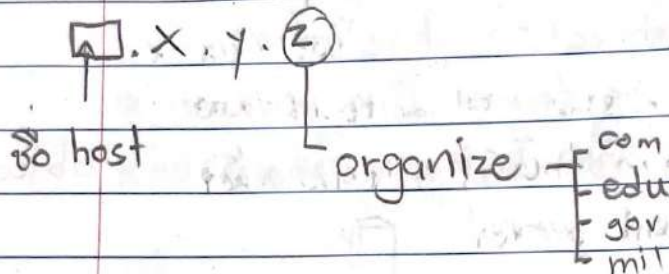 □.X.y.z
ชื่อ host
organize
com
edu
gov
mil